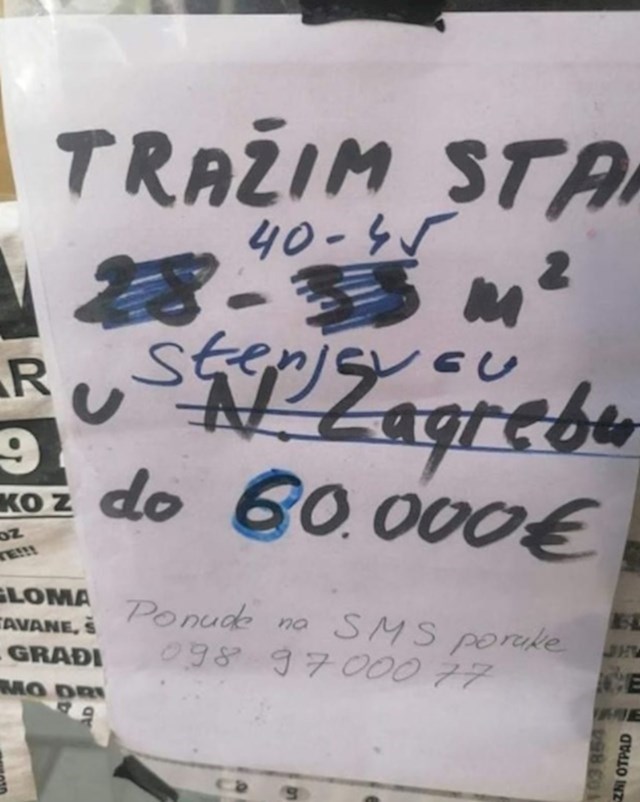 TRAŽIM STA
40-45
28 - 33 m²
Stenjevcu
u N. Zagrebu
do 60.000€
Ponude na SMS poruke
098 9700077
AR
9
KO Z
OZ
TE!!!
GLOMA
TAVANE, Š
GRAĐI
MO DR
ZNI OTPAD